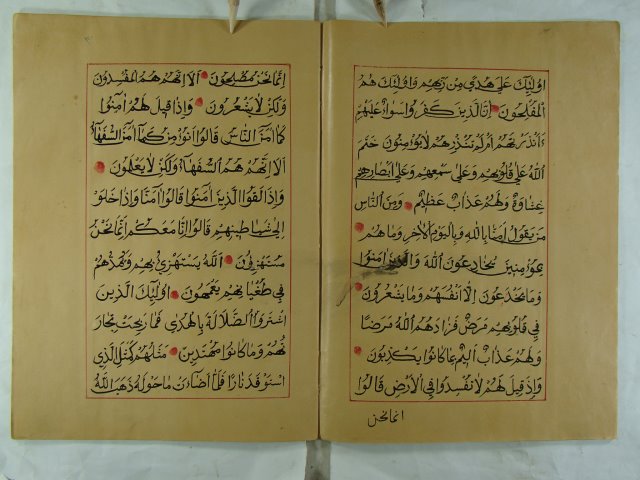 اولئك على هدى من ربهم واولئك هم
المفلحون ان الذين كفروا سواء عليهم
ءانذرتهم ام لم تنذرهم لا يؤمنون ختم
الله على قلوبهم وعلى سمعهم وعلى ابصارهم
غشاوة ولهم عذاب عظيم ومن الناس
من يقول امنا بالله وباليوم الاخر وما هم
بمؤمنين يخادعون الله والذين امنوا
وما يخدعون الا انفسهم وما يشعرون
في قلوبهم مرض فزادهم الله مرضا
ولهم عذاب اليم بما كانوا يكذبون
واذا قيل لهم لا تفسدوا في الارض قالوا
انما نحن
انما نحن مصلحون الا انهم هم المفسدون
ولكن لا يشعرون واذا قيل لهم امنوا
كما امن الناس قالوا انؤمن كما امن السفهاء
الا انهم هم السفهاء ولكن لا يعلمون
واذا لقوا الذين امنوا قالوا امنا واذا خلوا
الى شياطينهم قالوا انا معكم انما نحن
مستهزؤن الله يستهزئ بهم ويمدهم
في طغيانهم يعمهون اولئك الذين
اشتروا الضلالة بالهدى فما ربحت تجار
تهم وما كانوا مهتدين مثلهم كمثل الذي
استوقد نارا فلما اضاءت ما حوله ذهب الله